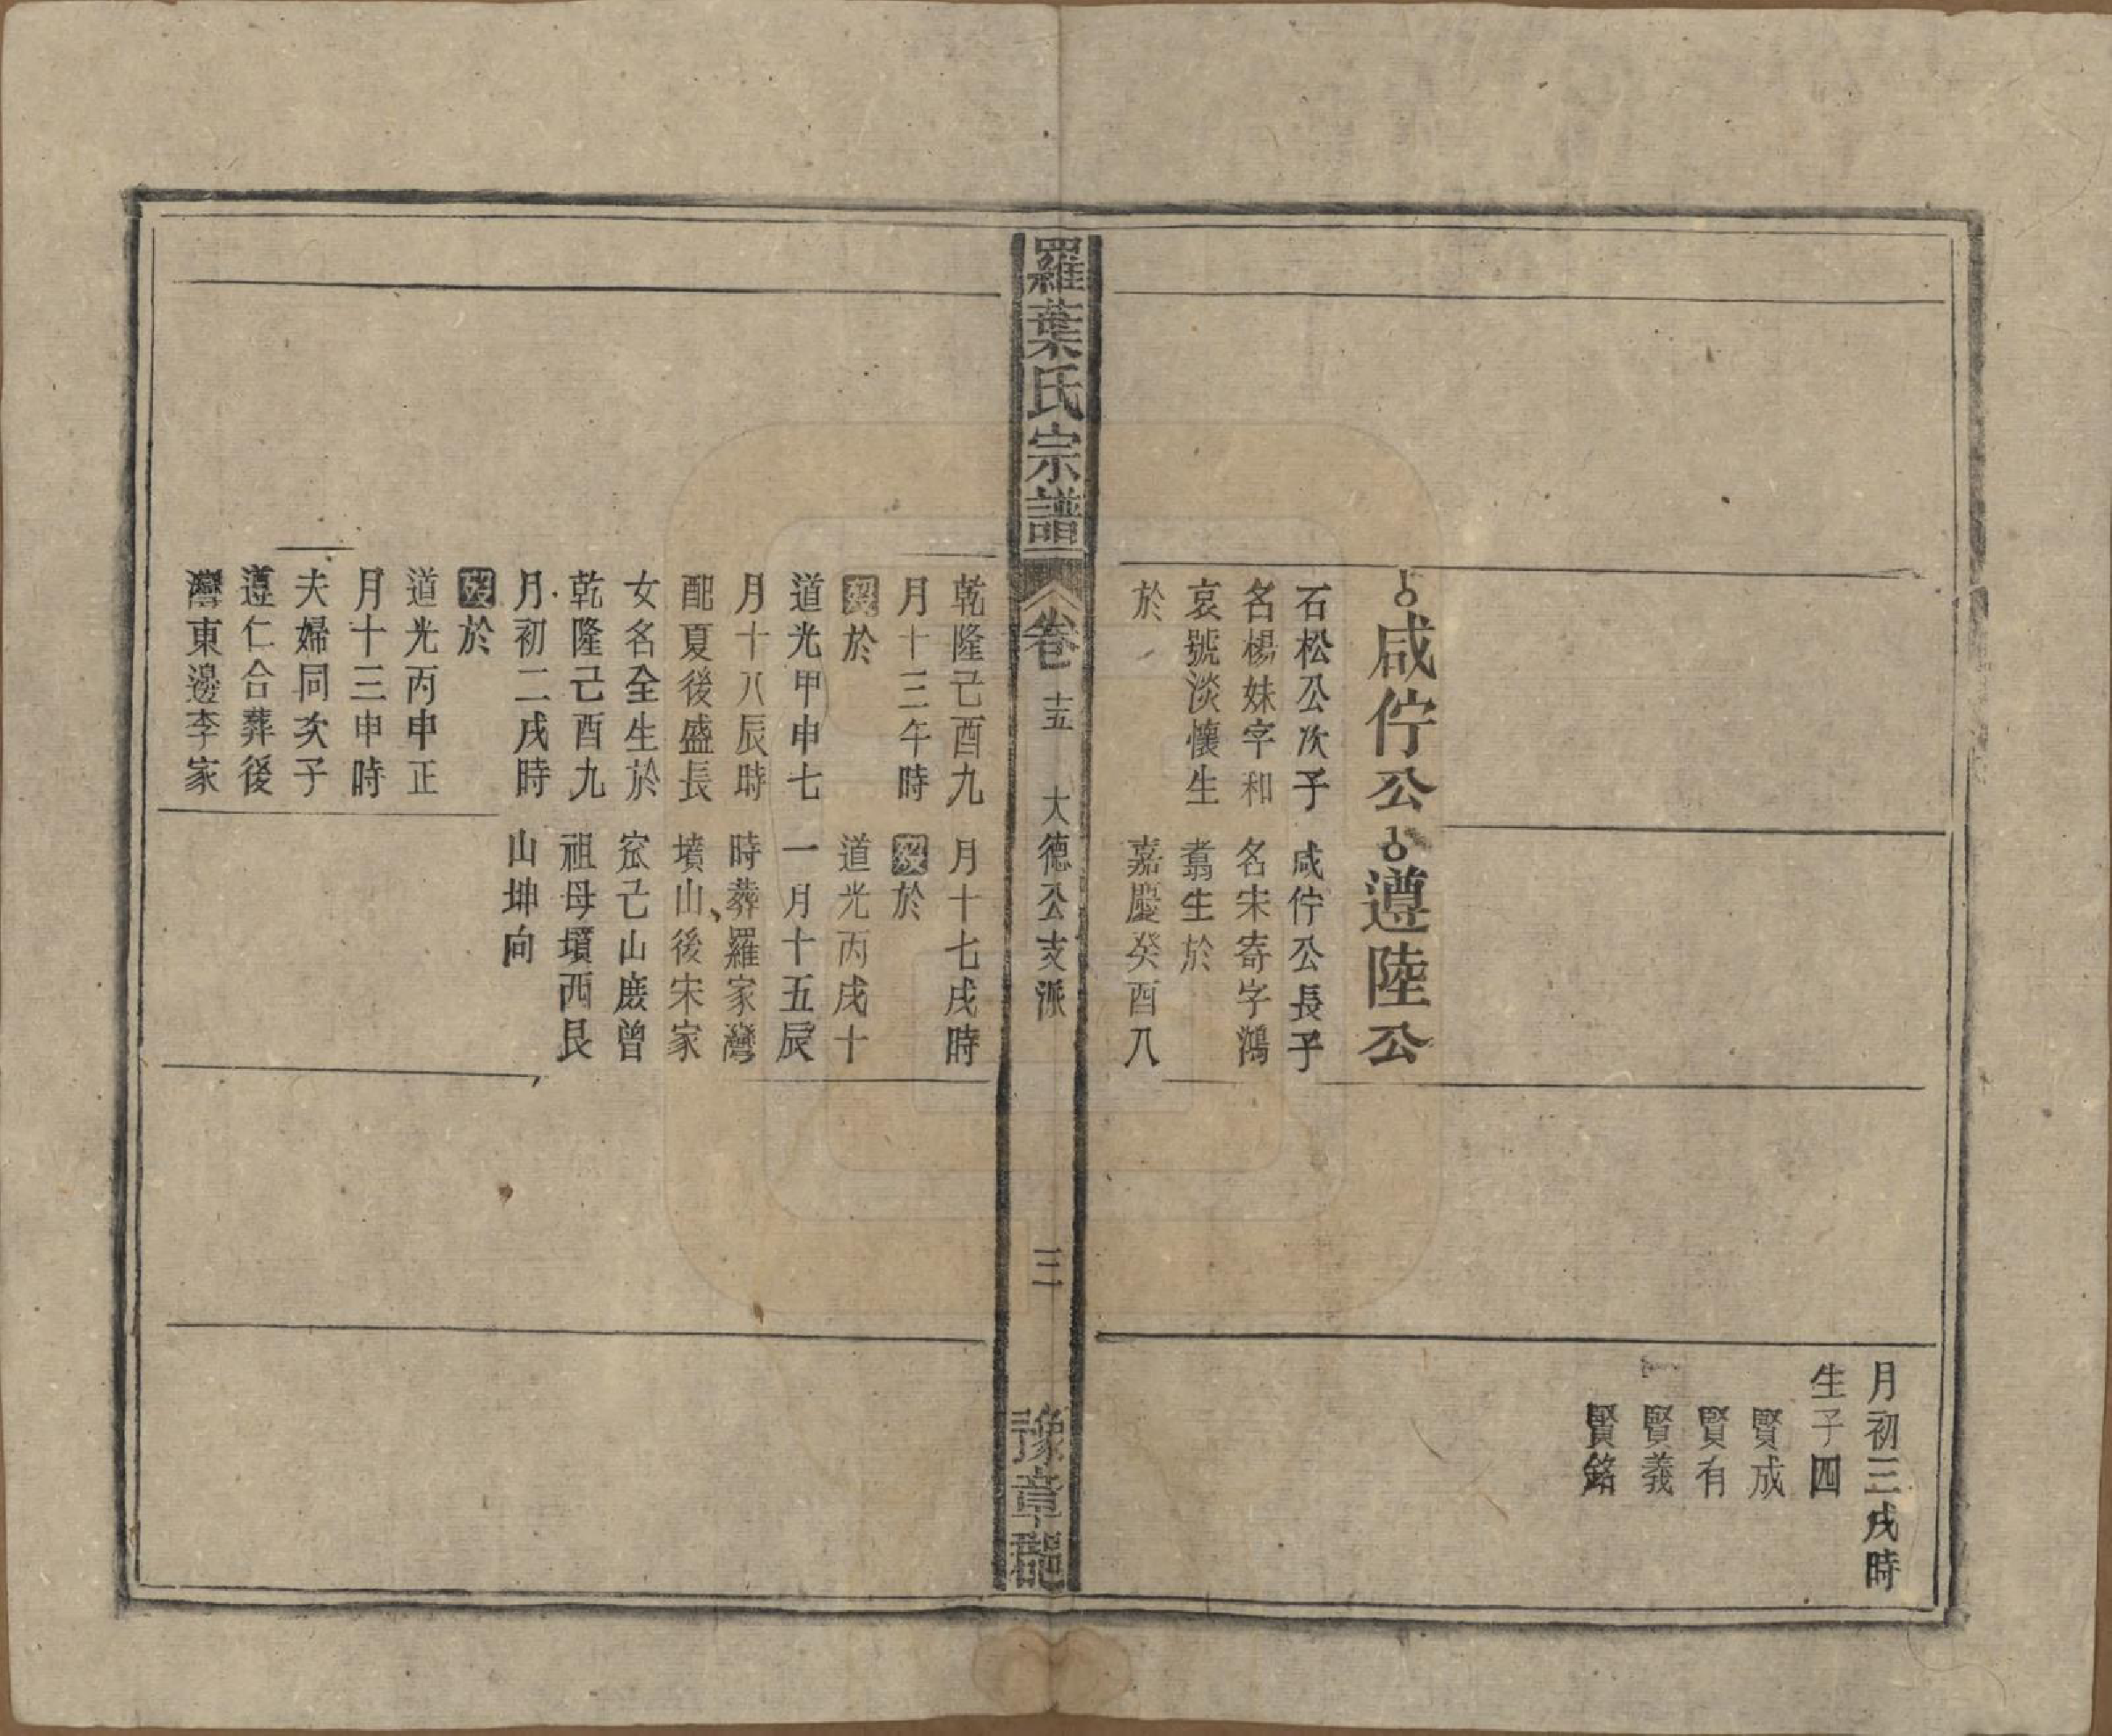 月初三戌時
生子四
賢成
賢有
賢義
賢銘
咸佇公
石松公次子
名楊妹字和
哀號淡懷生
於
遵陸公
咸佇公長子
名宋寄字鴻
翥生於
嘉慶癸酉八
羅葉氏宗譜
卷 十五
大德公支派
三
豫章郡
乾隆己酉九
月十三午時
歿於
道光甲申七
月十八辰時
配夏後盛長
女名全生於
乾隆己酉九
月初二戌時
歿於
道光丙申正
月十三申時
夫婦同次子
遵仁合葬後
灣東邊李家
月十七戌時
歿於
道光丙戌十
一月十五辰
時葬羅家灣
墳山後宋家
宏己山廒曾
祖母墳西艮
山坤向